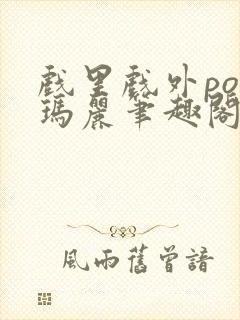 戲里戲外po
瑪麗筆趣閣
風雨舊曾諳